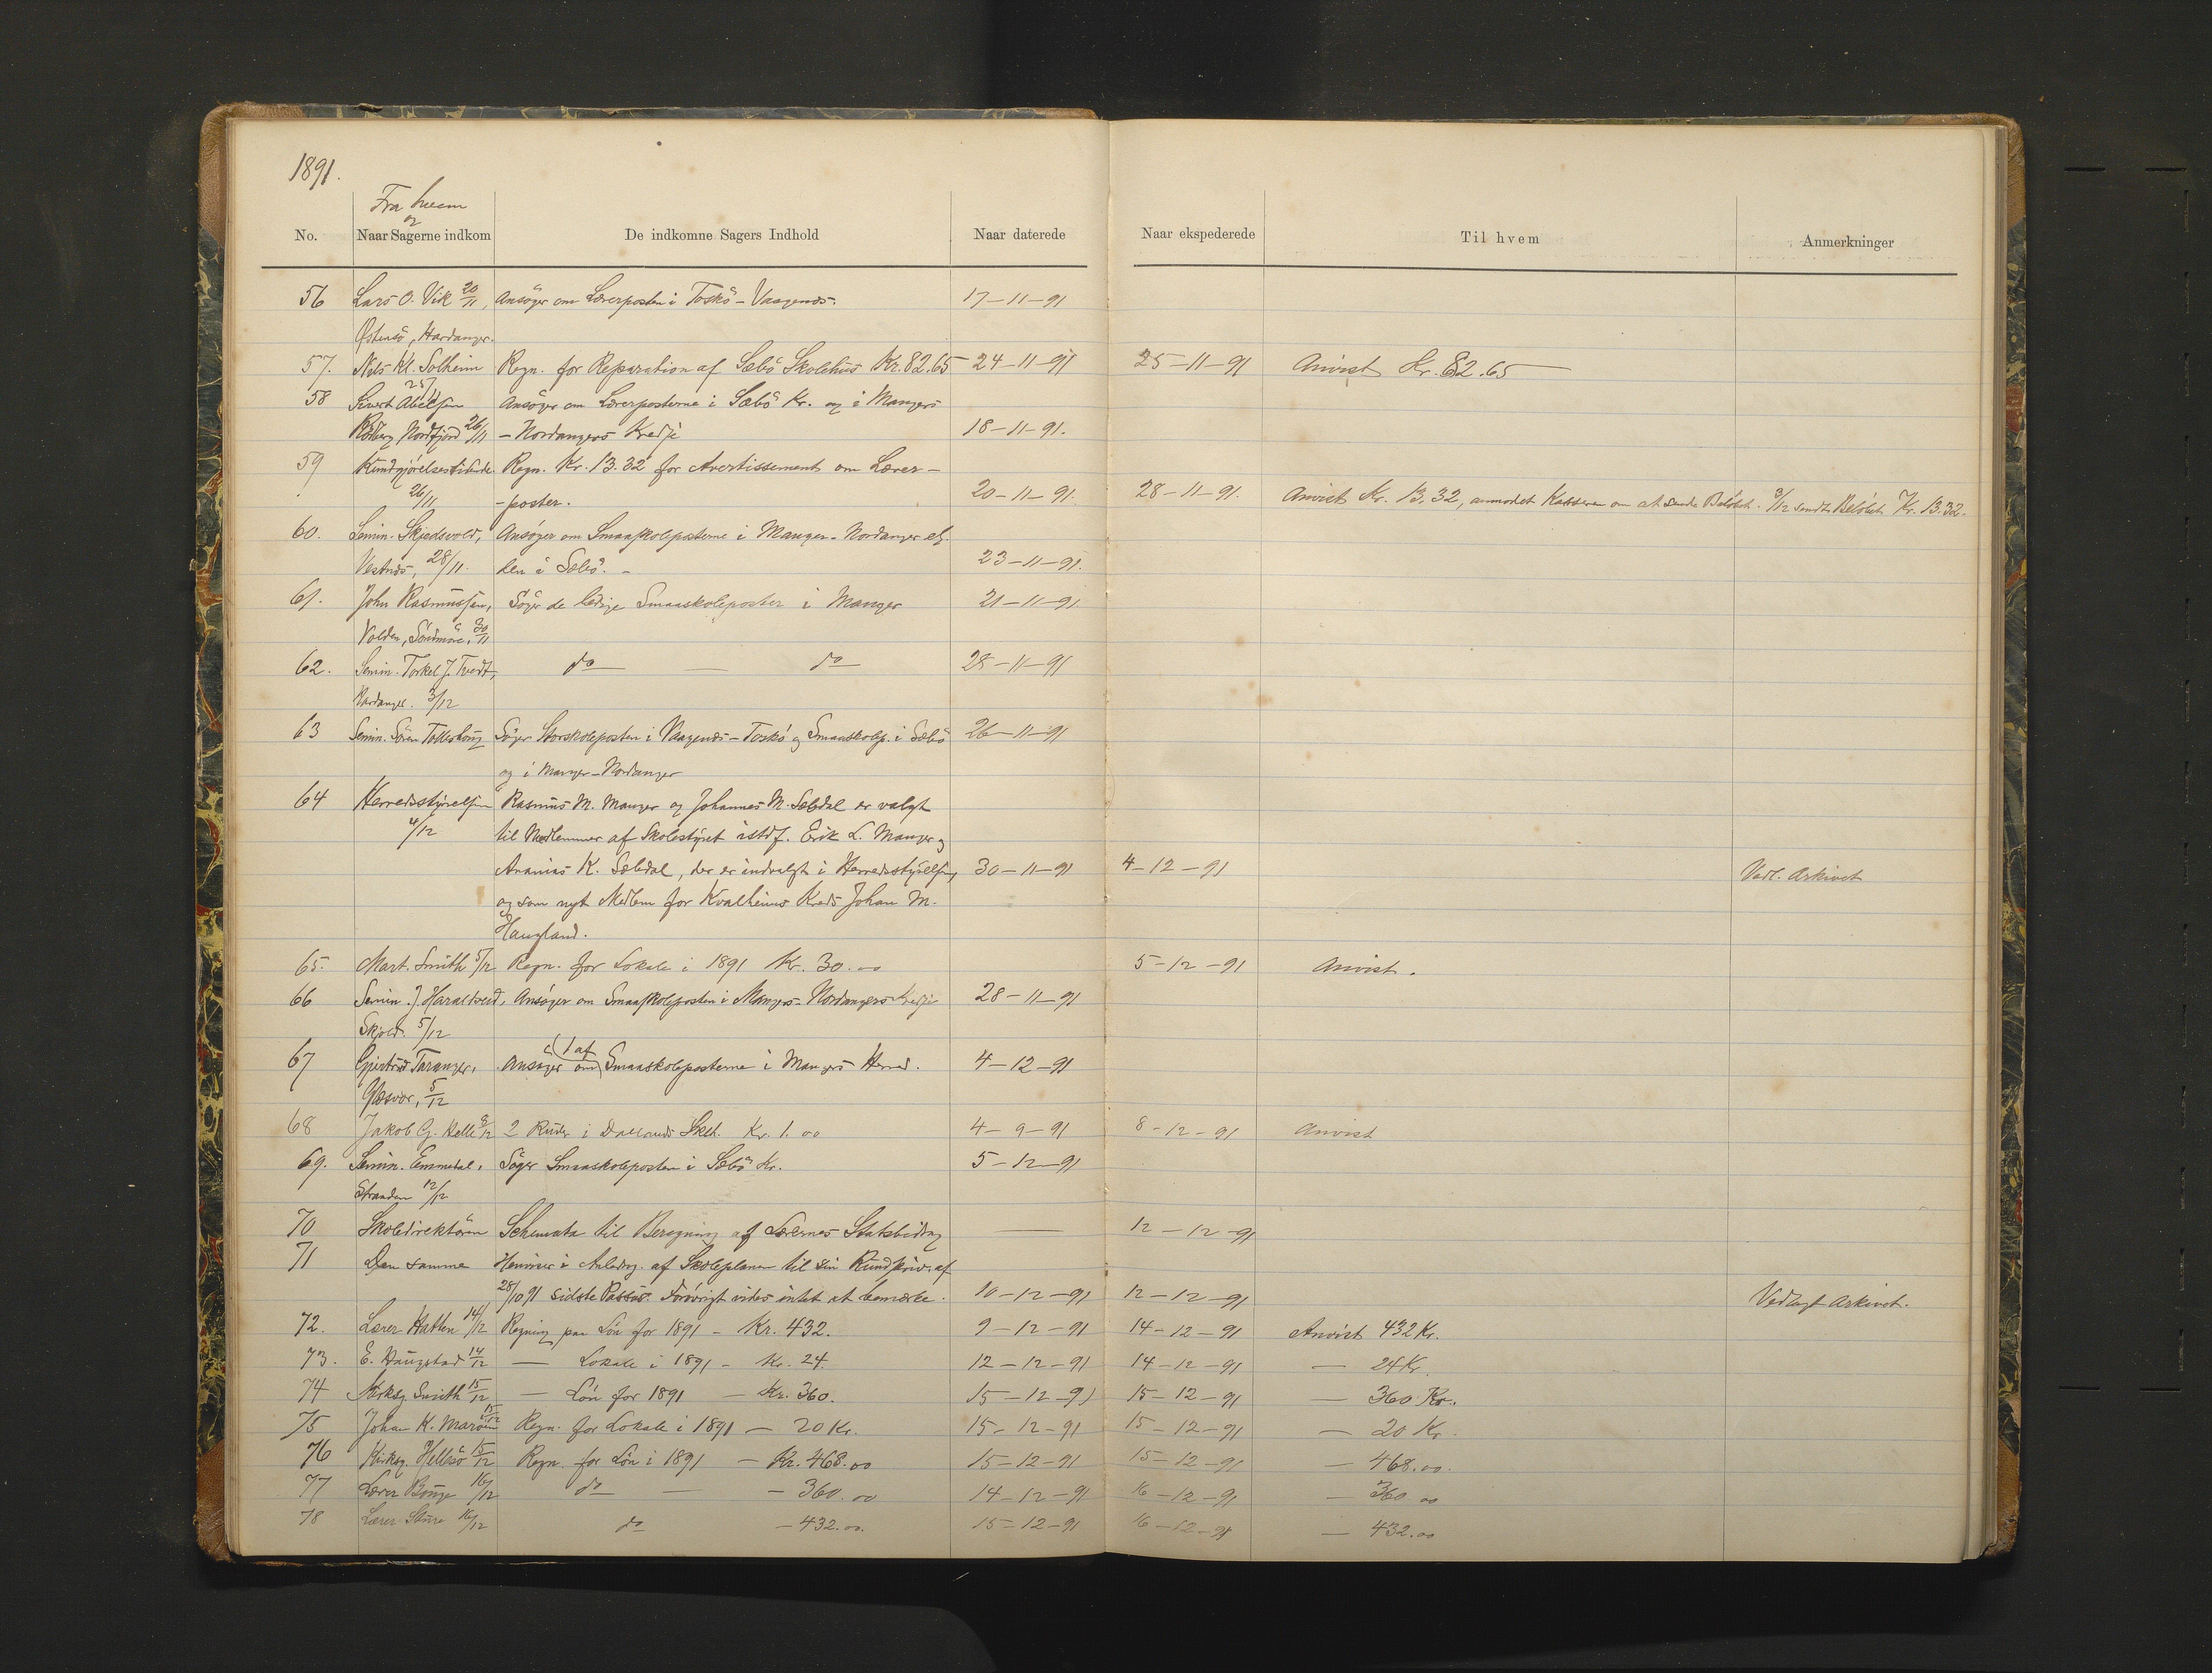 1891.
Fra hvem
og
No. Naar Sagerne indkom De indkomne Sagers Indhold Naar daterede Naar ekspederede Til hvem Anmerkninger
56 Lars O. Vik 20/11, Ansöger om Lærerposten i Toskö - Vaagenes. 17-11-91
Østensö, Hardanger.
57. Nils Kl. Solheim Regn. for Reparation af Sæbö Skolehus Kr. 82.65 24-11-91 25-11-91 Anvist Kr. 82.65
25/11
58 Sivert Abelsen Ansöger om Lærerposterne i Sæbö Kr. og i Mangers
Nordfjord 26/11 - Nordangers Kredse 18-11-91.
59 Kundgjörelsestidende Regn. Kr. 13.32 for Avertissement om Lærer-
26/11 - poster. 20-11-91. 28-11-91. Anvist Kr. 13.32, anmodet Kasseren om at sende Belöbet. 9/12 sendt Belöbet Kr. 13.32.
60. Semin. Skjedsvold, Ansöger om Smaaskoleposterne i Manger - Nordanger el.
Vestnes, 28/11. den i Sæbö. - 23-11-91.
61. John Rasmussen, Söger de ledige Smaaskoleposter i Manger 21-11-91.
Volden, Söndmöre, 30/11
62. Semin. Torkel J. Tvedt, do — do 28-11-91
Hardanger. 3/12
63 Semin. Sören Tolleshaug Söger Storskoleposten i Vaagenes - Toskö og Smaaskolep. i Sæbö 26-11-91
og i Manger - Nordanger
64 Herredsstyrelsen Rasmus M. Manger og Johannes M. Sæbdal er valgt
4/12 til Medlemmer af Skolestyret istdf. Erik L. Manger og
Ananias K. Sæbdal, der er indvalgt i Herredsstyrelsen, 30-11-91 4-12-91 Vedl. Arkivet
og som nyt Medlem for Kvalheims Kreds Johan M.
Haugland.
65. Mart. Smith 5/12 Regn. for Lokale i 1891 Kr. 30.00 5-12-91 Anvist.
66 Semin. J. Haraldseid, Ansöger om Smaaskoleposten i Mangers - Nordangers Kredse 28-11-91
Skjold. 5/12
1 af
67 Gjertrud Taranger, Ansöger om Smaaskoleposterne i Mangers Herred. 4-12-91
Glesvær, 5/12
68 Jakob G. Helle 8/12 2 Ruder i Dallands Sklh. Kr. 1.00 4-9-91 8-12-91 Anvist
69. Semin. Emmedal, Söger Smaaskoleposten i Sæbö Kr. 5-12-91
Stranden 12/12
70 Skoledirektören Schemata til Beregning af Lærernes Statsbidrag — 12-12-91
71 Den samme Henviser i Anledng. af Skoleplanen til sin Rundskriv. af
28/10 91 sidste Passus. Forövrigt vides intet at bemærke. 10-12-91 12-12-91 Vedlagt Arkivet.
72. Lærer Hatten 14/12 Regning paa Lön for 1891 - Kr. 432. 9-12-91 14-12-91 Anvist 432 Kr.
73. E. Haugstad 14/12 — Lokale i 1891 - Kr. 24. 12-12-91 14-12-91 — 24 Kr.
74 Kirksg. Smith 15/12 — Lön for 1891 - Kr. 360. 15-12-91 15-12-91 — 360 Kr.
75 Johan K. Maröen 15/12 Regn. for Lokale i 1891 - 20 Kr. 15-12-91 15-12-91 — 20 Kr.
76 Kirksg. Hellesö 15/12 Regn. for Lön i 1891 - Kr. 468.00 15-12-91 15-12-91 — 468.00.
77 Lærer Bouge 16/12 do — - 360.00 14-12-91 16-12-91 — 360 00
78 Lærer Sture 16/12 do - 432.00. 15-12-91 16-12-91 — 432.00